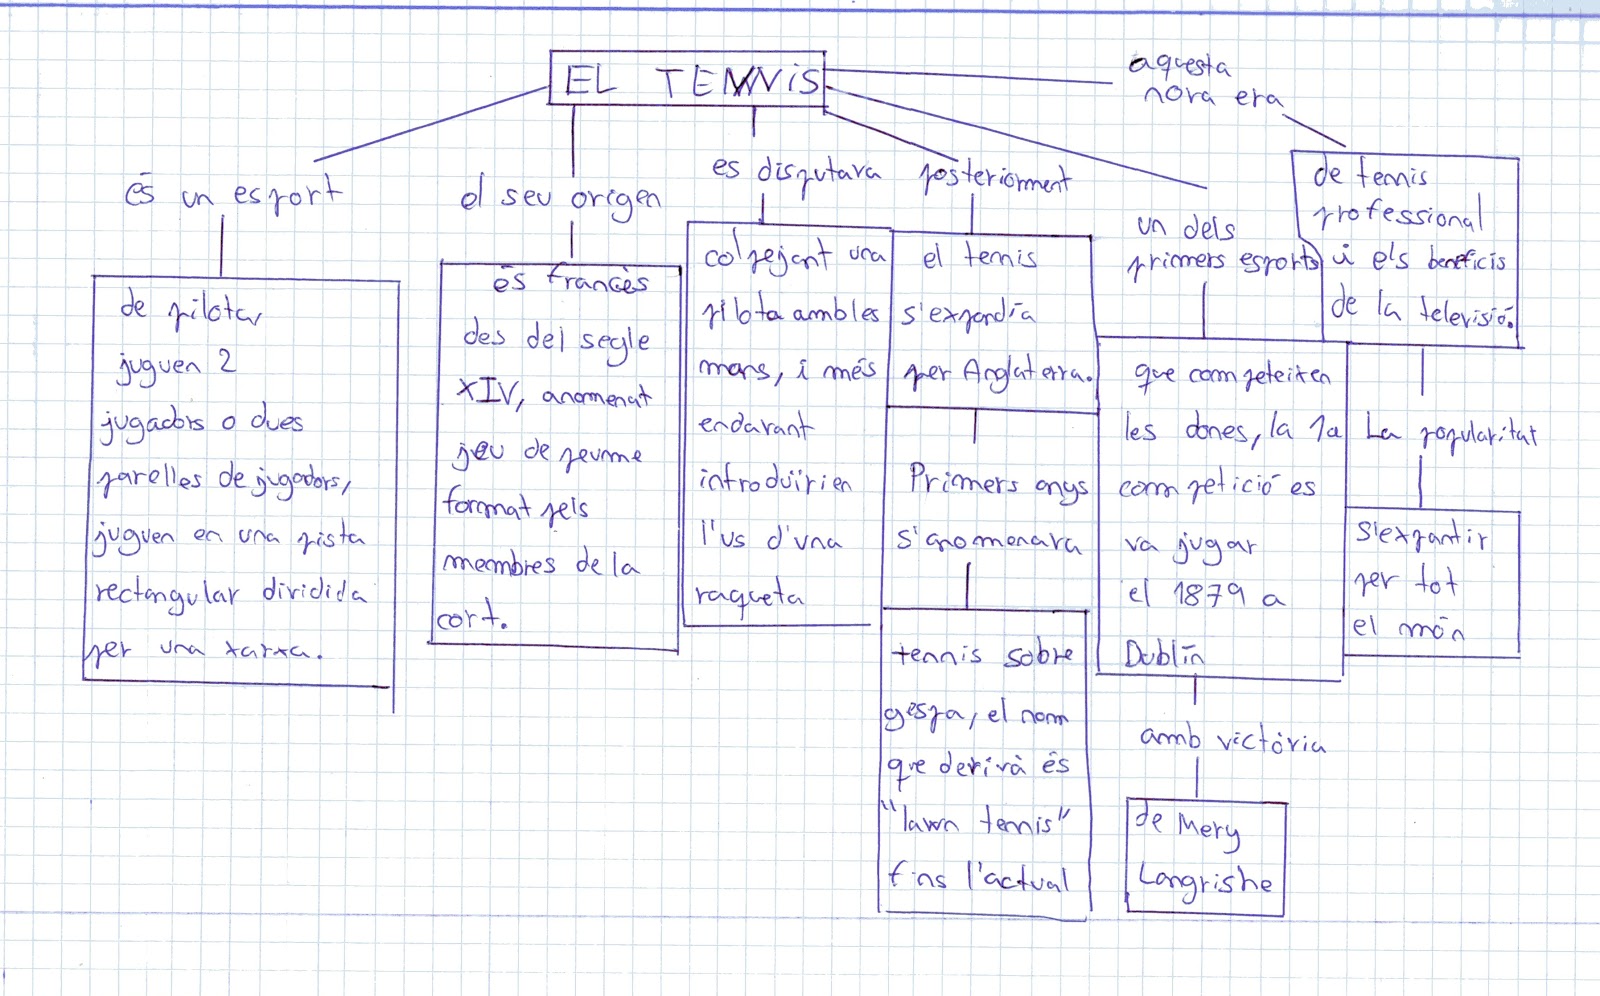 EL TENNIS
és un esport
de pilota,
juguen 2
jugadors o dues
parelles de jugadors,
juguen en una pista
rectangular dividida
per una xarxa.
el seu origen
és francès
des del segle
XIV, anomenat
jeu de peume
format pels
membres de la
cort.
es disputava
colpejant una
pilota ambles
mans, i més
endavant
introduïrien
l'us d'una
raqueta
posteriorment
el tennis
s'expandía
per Anglaterra.
Primers anys
s'anomenava
tennis sobre
gespa, el nom
que derivà és
"lawn tennis"
fins l'actual
un dels
primers esports
que competeixen
les dones, la 1a
competició es
va jugar
el 1879 a
Dublín
amb victòria
de Mery
Langrishe
aquesta
nova era
de tennis
professional
i els beneficis
de la televisió.
La popularitat
s'expantir
per tot
el món